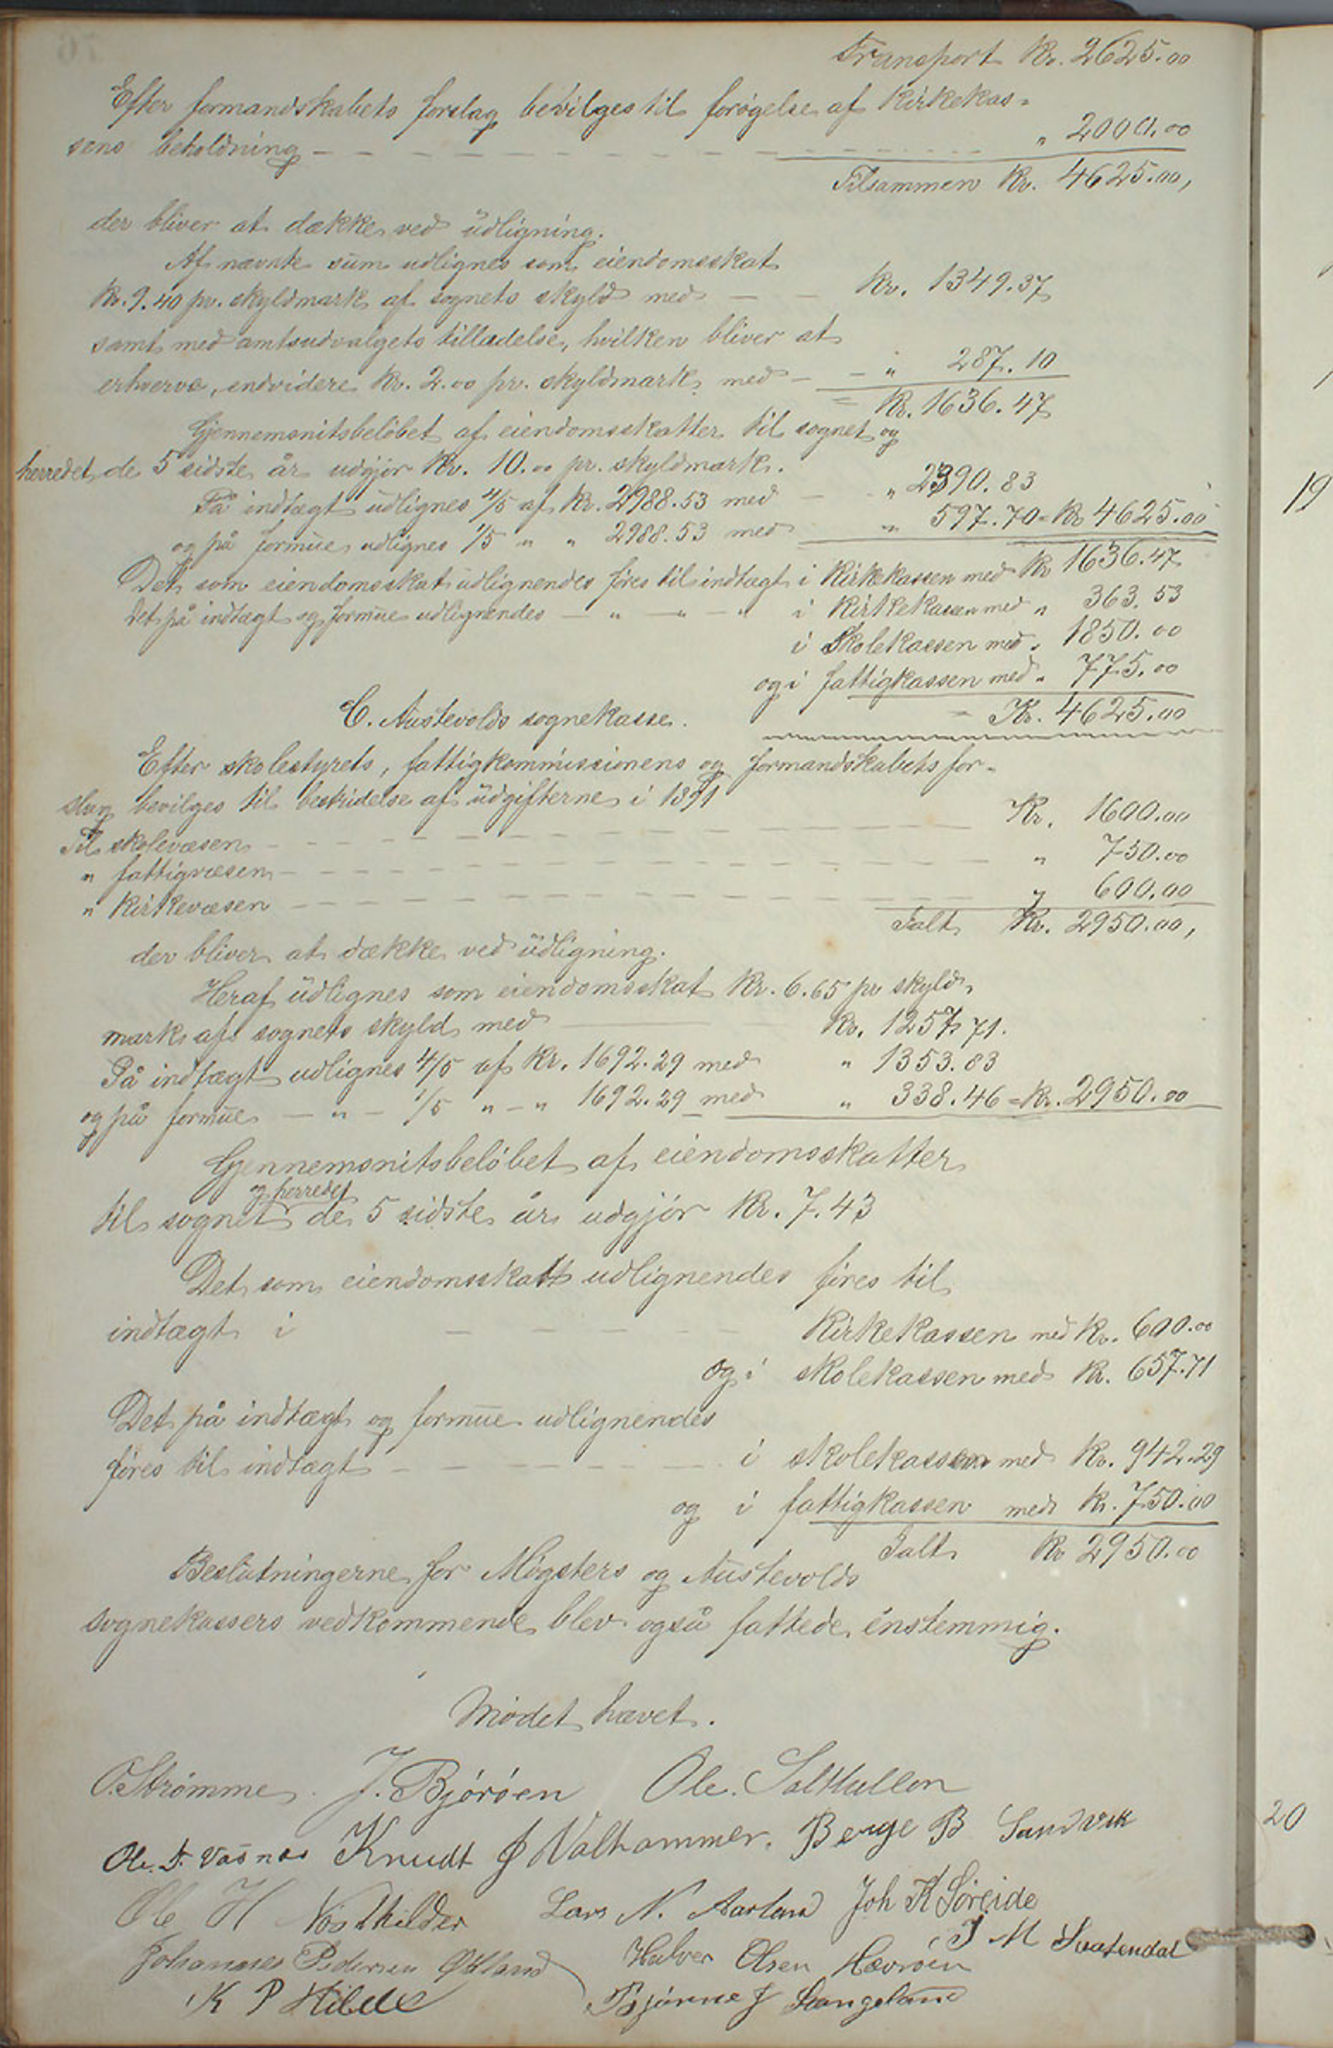 Transport Kr. 2625.00
Efter formandskabets forslag bevilges til forøgelse af Kirkekas-
sens beholdning - - - - - - - - - " 2000.00
Tilsammen Kr. 4625.00,
der bliver at dække ved udligning.
Af nævnte sum udlignes som eiendomsskat
kr. 9.40 pr. skyldmark af sognets skyld med - - Kr. 1349.37
samt med amtsudvalgets tilladelse, hvilken bliver at
erhverve, endvidere kr. 2.00 pr. skyldmark med - - " 287.10
= Kr. 1636.47
Gjennemsnitsbeløbet af eiendomsskatter til sognet og
herredet de 5 sidste år udgjør Kr. 10.00 pr. skyldmark.
På indtægt udlignes 4/5 af Kr. 2988.53 med - " 2390.83
og på formue udlignes 1/5 " " 2988.53 med " 597.70 = Kr 4625.00
Det som eiendomsskat udlignendes føres til indtægt i Kirkekassen med Kr 1636.47
Det på indtægt og formue udlignendes - " - " - " i Kirkekassen med " 363.53
i Skolekassen med " 1850.00
og i fattigkassen med " 775.00
= Kr. 4625.00
C. Austevolds sognekasse.
Efter skolestyrets, fattigkommissionens og formandskabets for-
slag bevilges til bestridelse af udgifterne i 1891
Til skolevæsen - - - - Kr. 1600.00
" fattigvæsen - - - - " 750.00
" Kirkevæsen - - - - " 600.00
Ialt Kr. 2950.00,
der bliver at dække ved udligning.
Heraf udlignes som eiendomsskat Kr. 6.65 pr skyld-
mark af sognets skyld med - Kr. 1257.71.
På indtægt udlignes 4/5 af Kr. 1692.29 med " 1353.83
og på formue - " - 1/5 " - " 1692.29 med " 338.46 = Kr. 2950.00
Gjennemsnitsbeløbet af eiendomsskatter
og herredet
til sognet de 5 sidste år udgjør Kr. 7.43
Det som eiendomsskatt udlignendes føres til
indtægt i - - - - Kirkekassen med Kr. 600.00
og i skolekassen med Kr. 657.71
Det på indtægt og formue udlignendes
føres til indtægt - - - - i skolekassen med Kr. 942.29
og i fattigkassen med Kr. 750.00
Ialt Kr 2950.00
Beslutningerne for Møgsters og Austevolds
sognekassers vedkommende blev også fattede enstemmig.
Mødet hævet.
O. Strømme. J. Bjørøen Ole. Salthellen
Ole. T. Vaønæs Knudt J Valhammer. Berge B Sandvik
Ole H Vosthilder Lars N. Aarland Joh K Søreide
Johannes Pedersen Økland Halver Olsen Hevrøen J M Svatendal
K P Hilde Bjørne J Langeland
19
20